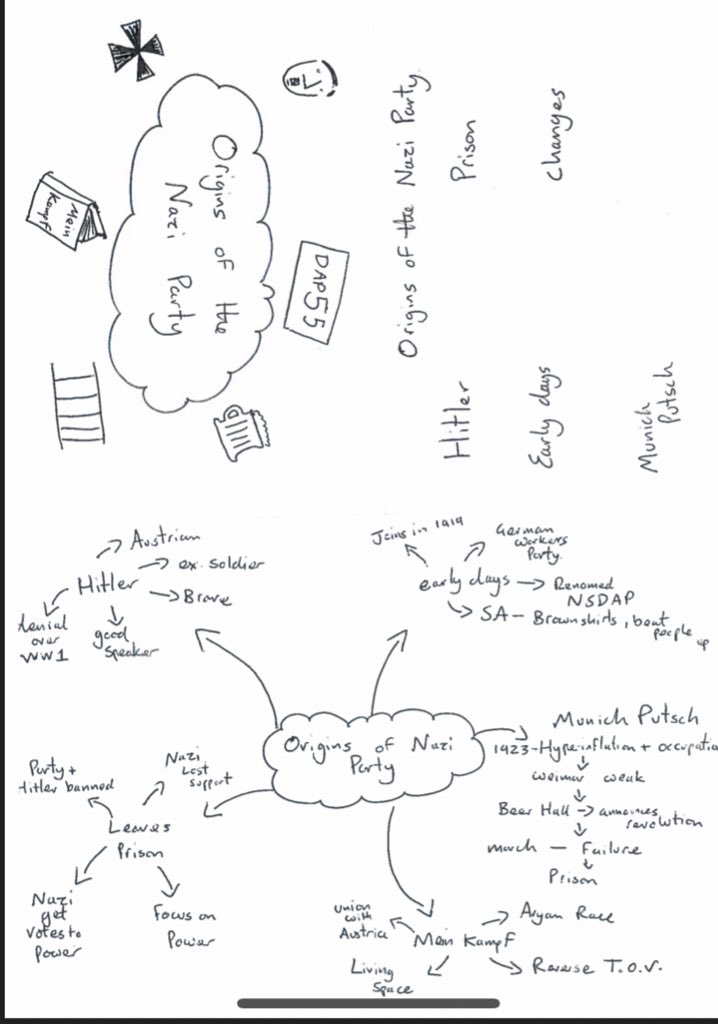 Origins of the
Nazi Party
Mein
Kampf
DAP 55
Origins of the Nazi Party
Prison
changes
Hitler
Early days
Munich
Putsch
Hitler
Austrian
ex. soldier
Brave
good
speaker
denial
over
WW1
early days
Joins in 1919
German
workers
Party.
Renamed
NSDAP
SA - Brownshirts, beat
people up
Origins of Nazi
Party
Munich Putsch
1923-Hyperinflation + occupatio
weimar weak
Beer Hall → announces
revolution
march — Failure
Prison
Leaves
Prison
Party +
Hitler banned
Nazi
Lost
support
Nazi
get
votes to
Power
Focus on
Power
Mein Kampf
union
with
Austria
Aryan Race
Living
Space
Reverse T.O.V.